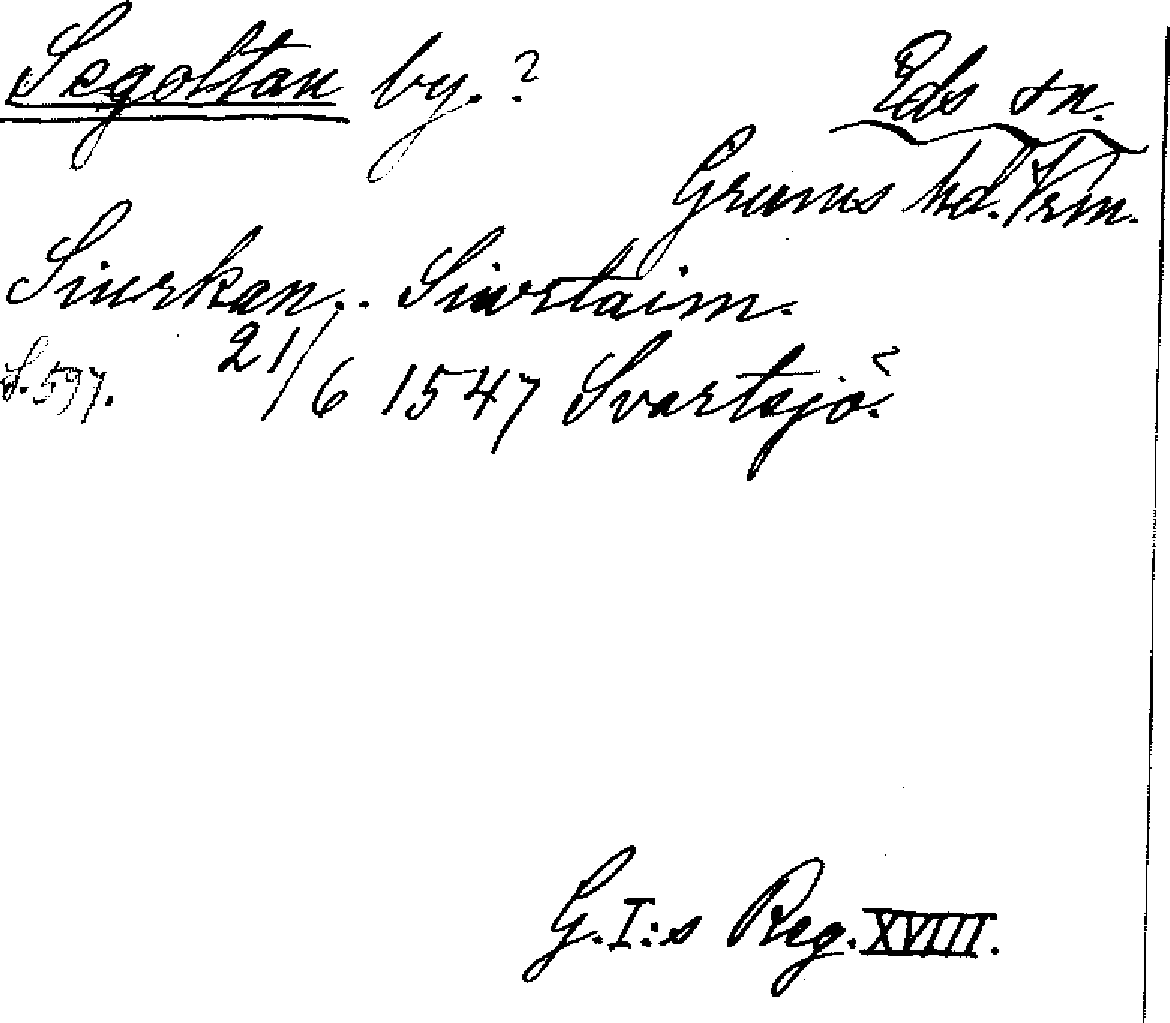 Segoltan by.?
Eds sn.
Grums hd. Vrm.
Siurkan.. Siurtaim.
S. 597. 21/6 1547 Svartsjö.
G.I:s Reg. XVIII.